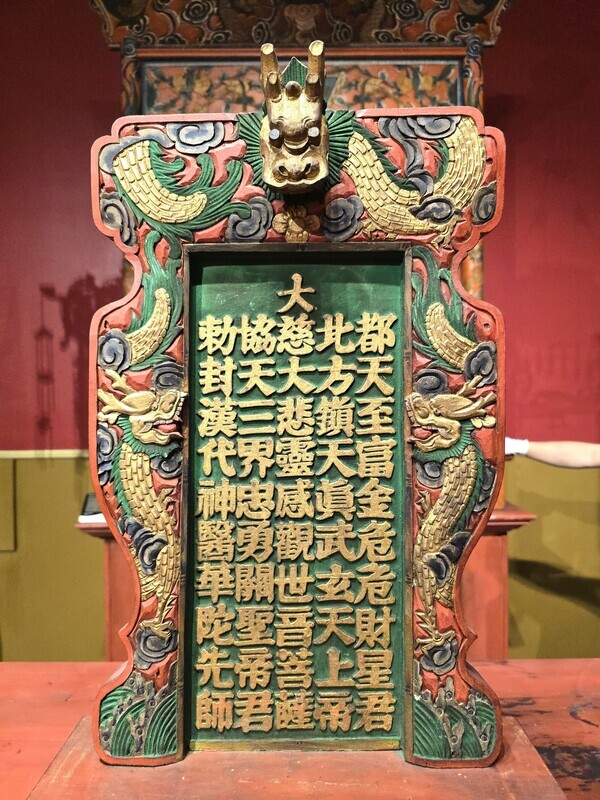 都天至富金危危財星君
北方鎮天眞武玄天上帝
大慈大悲靈感觀世音菩薩
協天三界忠勇關聖帝君
勅封漢代神醫華陀先師